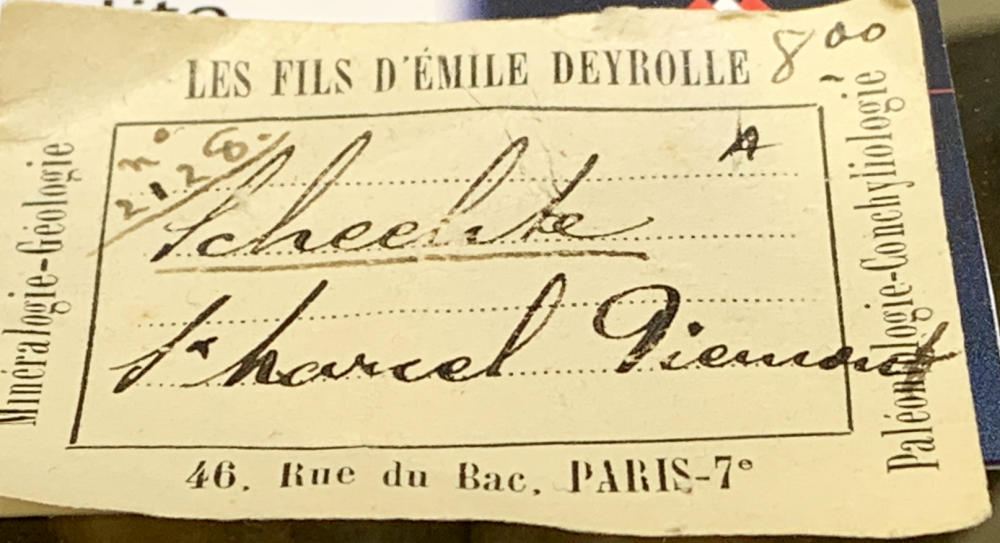 LES FILS D'ÉMILE DEYROLLE
8 00
Minéralogie-Géologie
Paléontologie-Conchyliologie
A
Scheelite
St Marcel Piemont
46, Rue du Bac, PARIS-7e